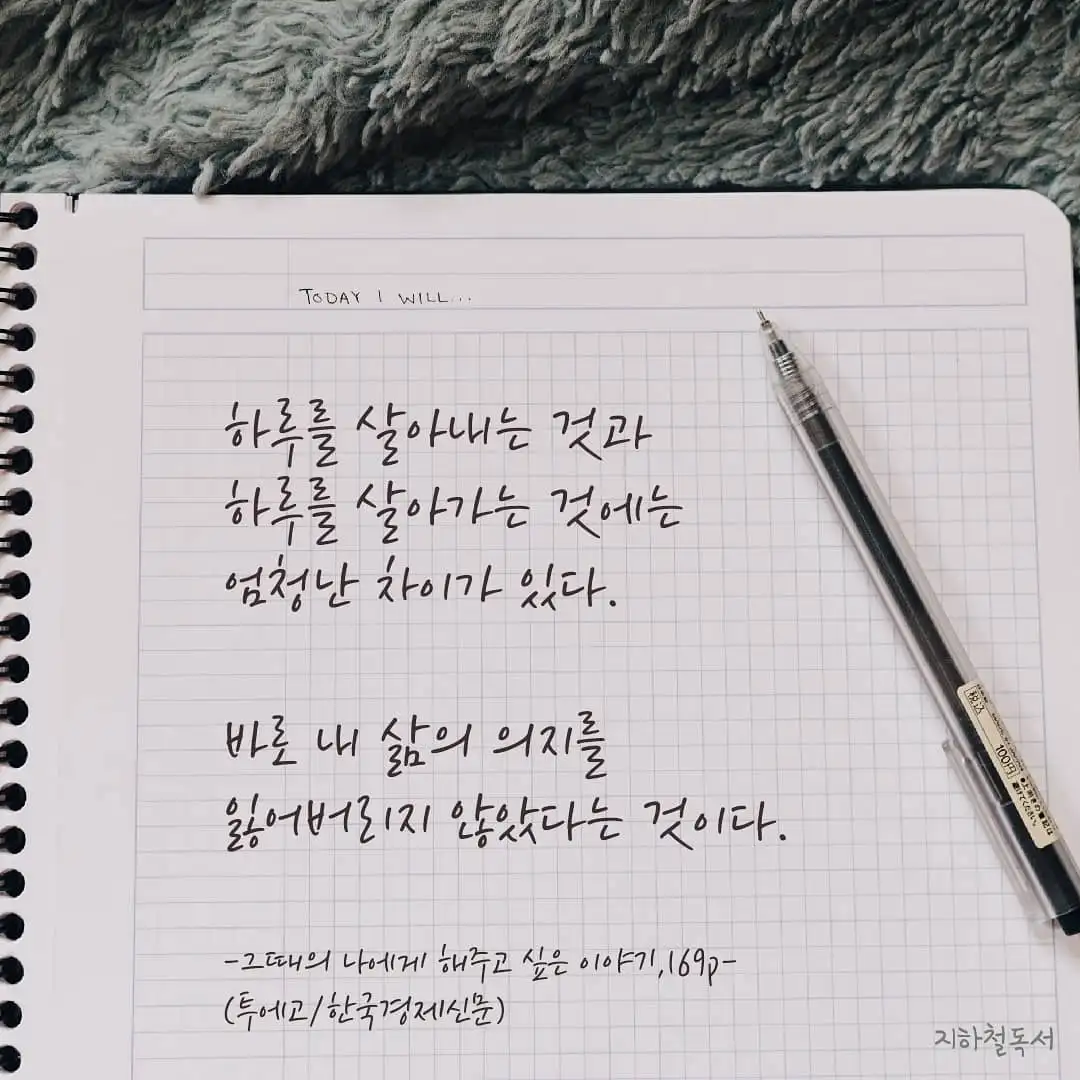 TODAY I WILL...
하루를 살아내는 것과
하루를 살아가는 것에는
엄청난 차이가 있다.
바로 내 삶의 의지를
잃어버리지 않았다는 것이다.
-그때의 나에게 해주고 싶은 이야기,169p-
(투에고/한국경제신문)
税込
100円
지하철독서